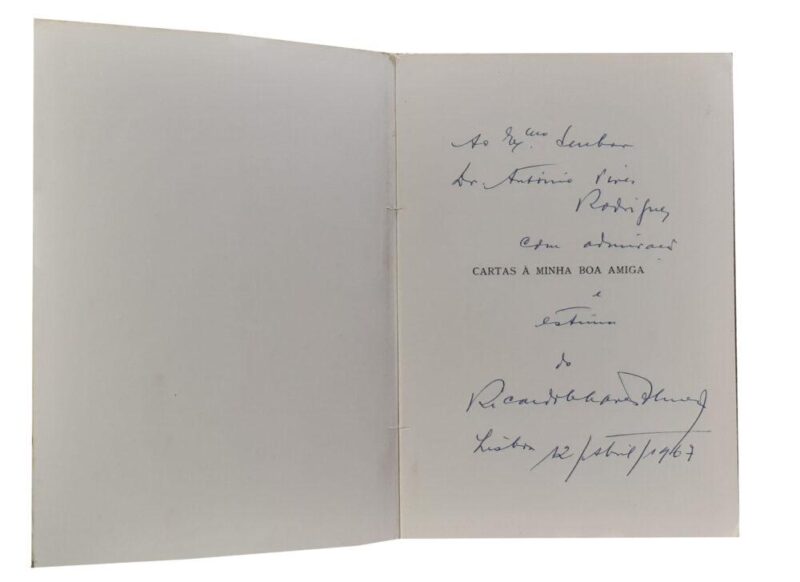 Ao Exmo. Senhor
Dr. António Pires
Rodrigues
com admiração
CARTAS À MINHA BOA AMIGA
e
estima
do
Ricardo
Lisboa 12/Abril/1967